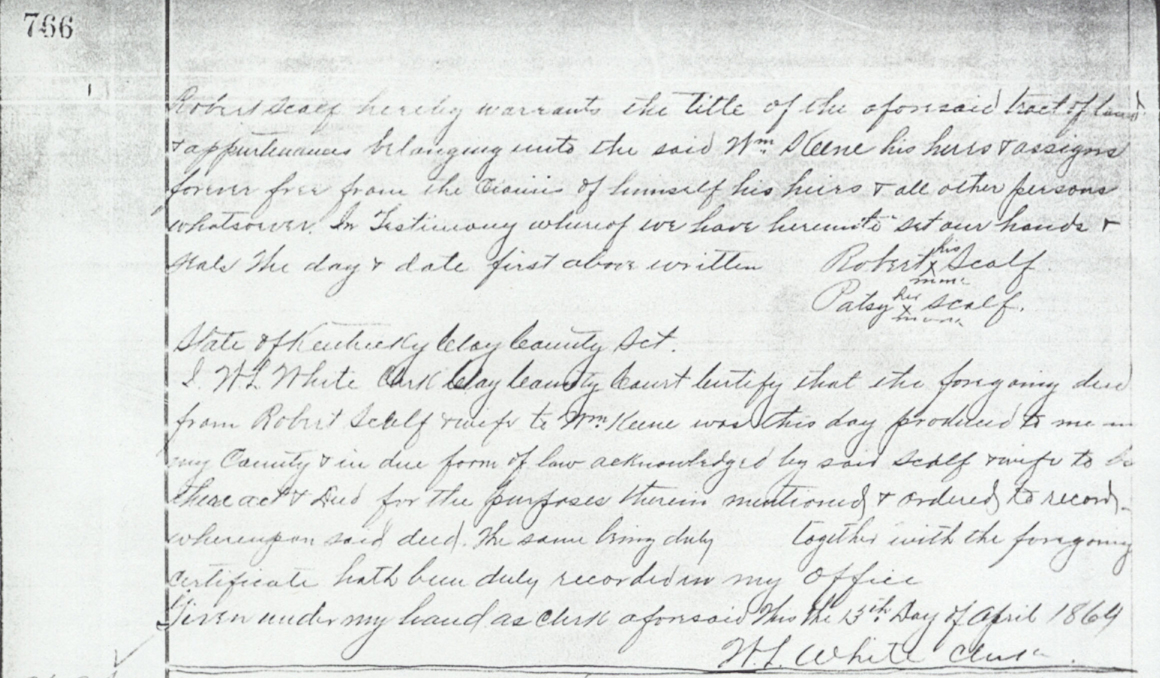 766
Robert Scalf hereby warrants the title of the aforesaid tract of land
& appurtenances belonging unto the said Wm Keene his heirs & assigns
forever free from the claims of himself his heirs & all other persons
whatsoever. In Testimony whereof we have hereunto set our hands &
seals the day & date first above written Robert his x mark Scalf.
Patsy her x mark Scalf.
State of Kentucky Clay County Sct.
I. W. L. White Clerk Clay County Court Certify that the foregoing deed
from Robert Scalf & wife to Wm Keene was this day produced to me in
my County & in due form of law acknowledged by said Scalf & wife to be
there act & Deed for the purposes therein mentioned & ordered to record,
whereupon said deed. The same being duly together with the foregoing
certificate hath been duly recorded in my office
Given under my hand as clerk aforesaid This the 13th Day of April 1864
W. L. White Clerk.